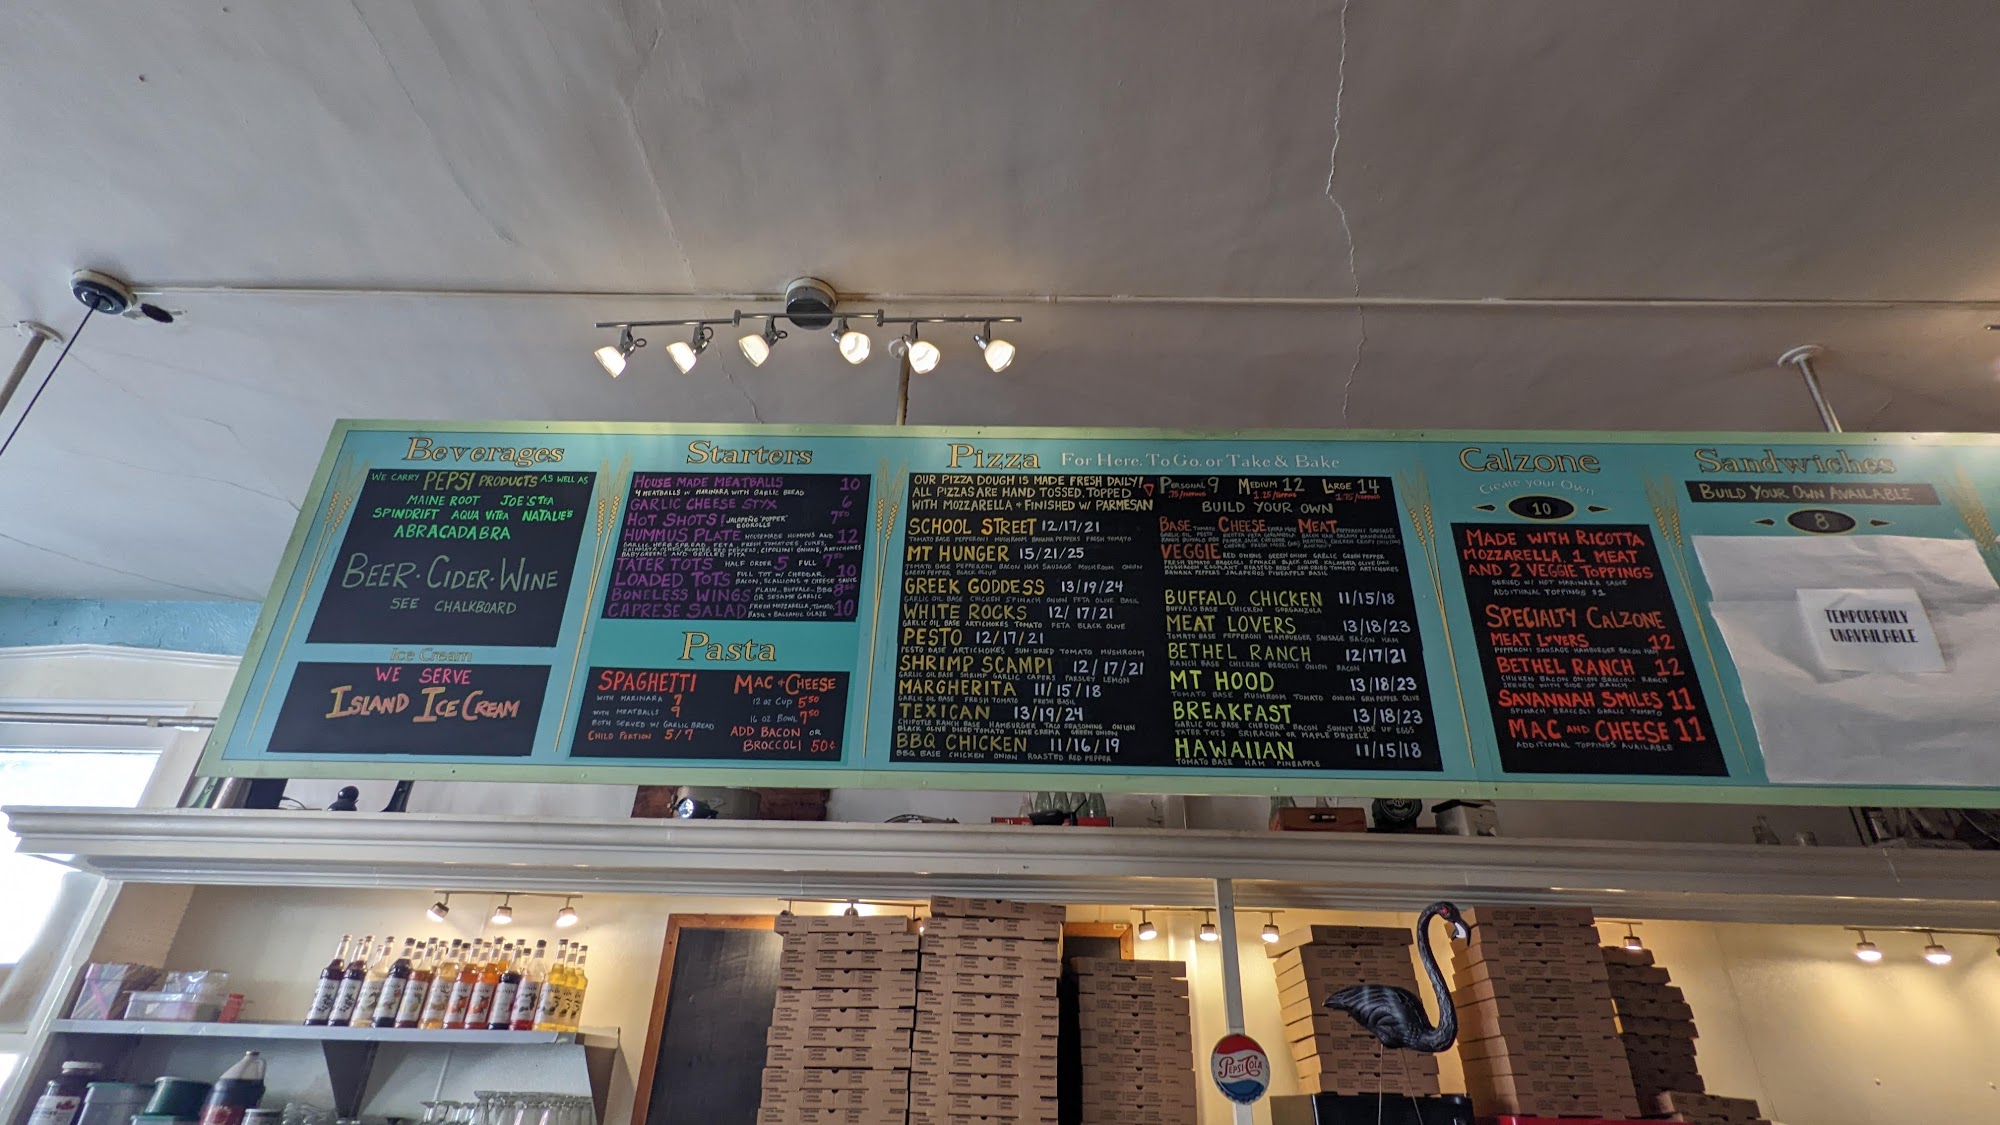 Beverages
WE CARRY PEPSI PRODUCTS AS WELL AS
MAINE ROOT JOE'S TEA
SPINDRIFT AQUA VITEA NATALIE'S
ABRACADABRA
BEER · CIDER · WINE
SEE CHALKBOARD
Ice Cream
WE SERVE
ISLAND ICE CREAM
Starters
HOUSE MADE MEATBALLS 10
4 MEATBALLS W/ MARINARA WITH GARLIC BREAD
GARLIC CHEESE STYX 6
HOT SHOTS! JALAPEÑO "POPPER" 750
HUMMUS PLATE HOUSEMADE HUMMUS AND 12
GARLIC HERB SPREAD, FETA, FRESH TOMATOES, CUKES,
BABYGREENS AND GRILLED PITA
TATER TOTS HALF ORDER 5 FULL 7
LOADED TOTS FULL TOT W/ CHEDDAR, BACON, SCALLIONS & CHEESE SAUCE 10
BONELESS WINGS PLAIN... BUFFALO... BBQ OR SESAME GARLIC
CAPRESE SALAD FRESH MOZZARELLA, TOMATO, BASIL & BALSAMIC GLAZE 10
Pasta
SPAGHETTI
WITH MARINARA 7
WITH MEATBALLS 9
BOTH SERVED W/ GARLIC BREAD
CHILD PORTION 5/7
MAC & CHEESE
12 OZ CUP 550
16 OZ BOWL 750
ADD BACON OR
BROCCOLI 50¢
Pizza For Here, To Go, or Take & Bake
OUR PIZZA DOUGH IS MADE FRESH DAILY!
ALL PIZZAS ARE HAND TOSSED, TOPPED
WITH MOZZARELLA & FINISHED W/ PARMESAN
SCHOOL STREET 12/17/21
TOMATO BASE PEPPERONI MUSHROOM BANANA PEPPERS FRESH TOMATO
MT HUNGER 15/21/25
TOMATO BASE PEPPERONI BACON HAM SAUSAGE MUSHROOM ONION
GREEN PEPPER, BLACK OLIVE
GREEK GODDESS 13/19/24
GARLIC OIL BASE CHICKEN SPINACH ONION FETA OLIVE BASIL
WHITE ROCKS 12/17/21
GARLIC OIL BASE ARTICHOKES TOMATO FETA BLACK OLIVE
PESTO 12/17/21
PESTO BASE ARTICHOKES SUN-DRIED TOMATO MUSHROOM
SHRIMP SCAMPI 12/17/21
GARLIC OIL BASE SHRIMP GARLIC CAPERS PARSLEY LEMON
MARGHERITA 11/15/18
GARLIC OIL BASE FRESH TOMATO FRESH BASIL
TEXICAN 13/19/24
CHIPOTLE RANCH BASE HAMBURGER TACO SEASONING ONION
BLACK OLIVE DICED TOMATO LIME CREMA GREEN ONION
BBQ CHICKEN 11/16/19
BBQ BASE CHICKEN ONION ROASTED RED PEPPER
PERSONAL 9 MEDIUM 12 LARGE 14
.75/TOPPING 1.25/TOPPING 1.75/TOPPING
BUILD YOUR OWN
BASE CHEESE MEAT
VEGGIE RED ONIONS GREEN ONION GARLIC GREEN PEPPER
BANANA PEPPERS JALAPEÑOS PINEAPPLE BASIL
BUFFALO CHICKEN 11/15/18
BUFFALO BASE CHICKEN GORGONZOLA
MEAT LOVERS 13/18/23
TOMATO BASE PEPPERONI HAMBURGER SAUSAGE BACON HAM
BETHEL RANCH 12/17/21
RANCH BASE CHICKEN BROCCOLI ONION BACON
MT HOOD 13/18/23
TOMATO BASE MUSHROOM TOMATO ONION GRN PEPPER OLIVE
BREAKFAST 13/18/23
GARLIC OIL BASE CHEDDAR BACON SUNNY SIDE UP EGGS
TATER TOTS SRIRACHA OR MAPLE DRIZZLE
HAWAIIAN 11/15/18
TOMATO BASE HAM PINEAPPLE
Calzone
Create your Own
10
MADE WITH RICOTTA
MOZZARELLA, 1 MEAT
AND 2 VEGGIE TOPPINGS
SERVED W/ HOT MARINARA SAUCE
ADDITIONAL TOPPINGS $1
SPECIALTY CALZONE
MEAT LOVERS 12
PEPPERONI SAUSAGE HAMBURGER BACON HAM
BETHEL RANCH 12
CHICKEN BACON ONION BROCCOLI RANCH
SERVED WITH SIDE OF RANCH
SAVANNAH SMILES 11
SPINACH BROCCOLI GARLIC TOMATO
MAC AND CHEESE 11
ADDITIONAL TOPPINGS AVAILABLE
Sandwiches
BUILD YOUR OWN AVAILABLE
8
TEMPORARILY
UNAVAILABLE
PEPSI-COLA